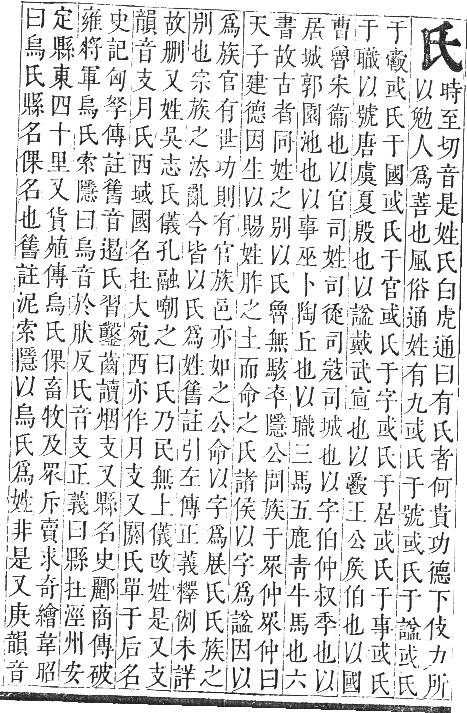 氏 時至切音是姓氏白虎通曰有氏者何貴功德下伎力所
以勉人爲善也風俗通姓有九或氏于號或氏于謚或氏
于爵或氏于國或氏于官或氏于字或氏于居或氏于事或氏
于職以號唐虞夏殷也以謚戴武宣也以爵王公矦伯也以國
曹魯宋衞也以官司姓司徒司寇司城也以字伯仲叔季也以
居城郭園池也以事巫卜陶丘也以職三馬五鹿青牛馬也六
書故古者同姓之别以氏魯無駭卒隱公問族于眾仲眾仲曰
天子建德因生以賜姓胙之土而命之氏諸侯以字爲謚因以
爲族官有世功則有官族邑亦如之公命以字爲展氏氏族之
别也宗族之法亂今皆以氏爲姓舊註引左傳正義釋例未詳
故刪又姓吳志氏儀孔融嘲之曰氏乃民無上儀改姓是又支
韻音支月氏西域國名在大宛西亦作月支又閼氏單于后名
史記匈拏傳註舊音遏氏習鑿齒讀烟支又縣名史酈商傳破
雍將軍烏氏索隱曰烏音於肰反氏音支正義曰縣在涇州安
定縣東四十里又貨殖傳烏氏倮畜牧及眾斥賣求奇繒韋昭
曰烏氏縣名倮名也舊註泥索隱以烏氏爲姓非是又庚韻音